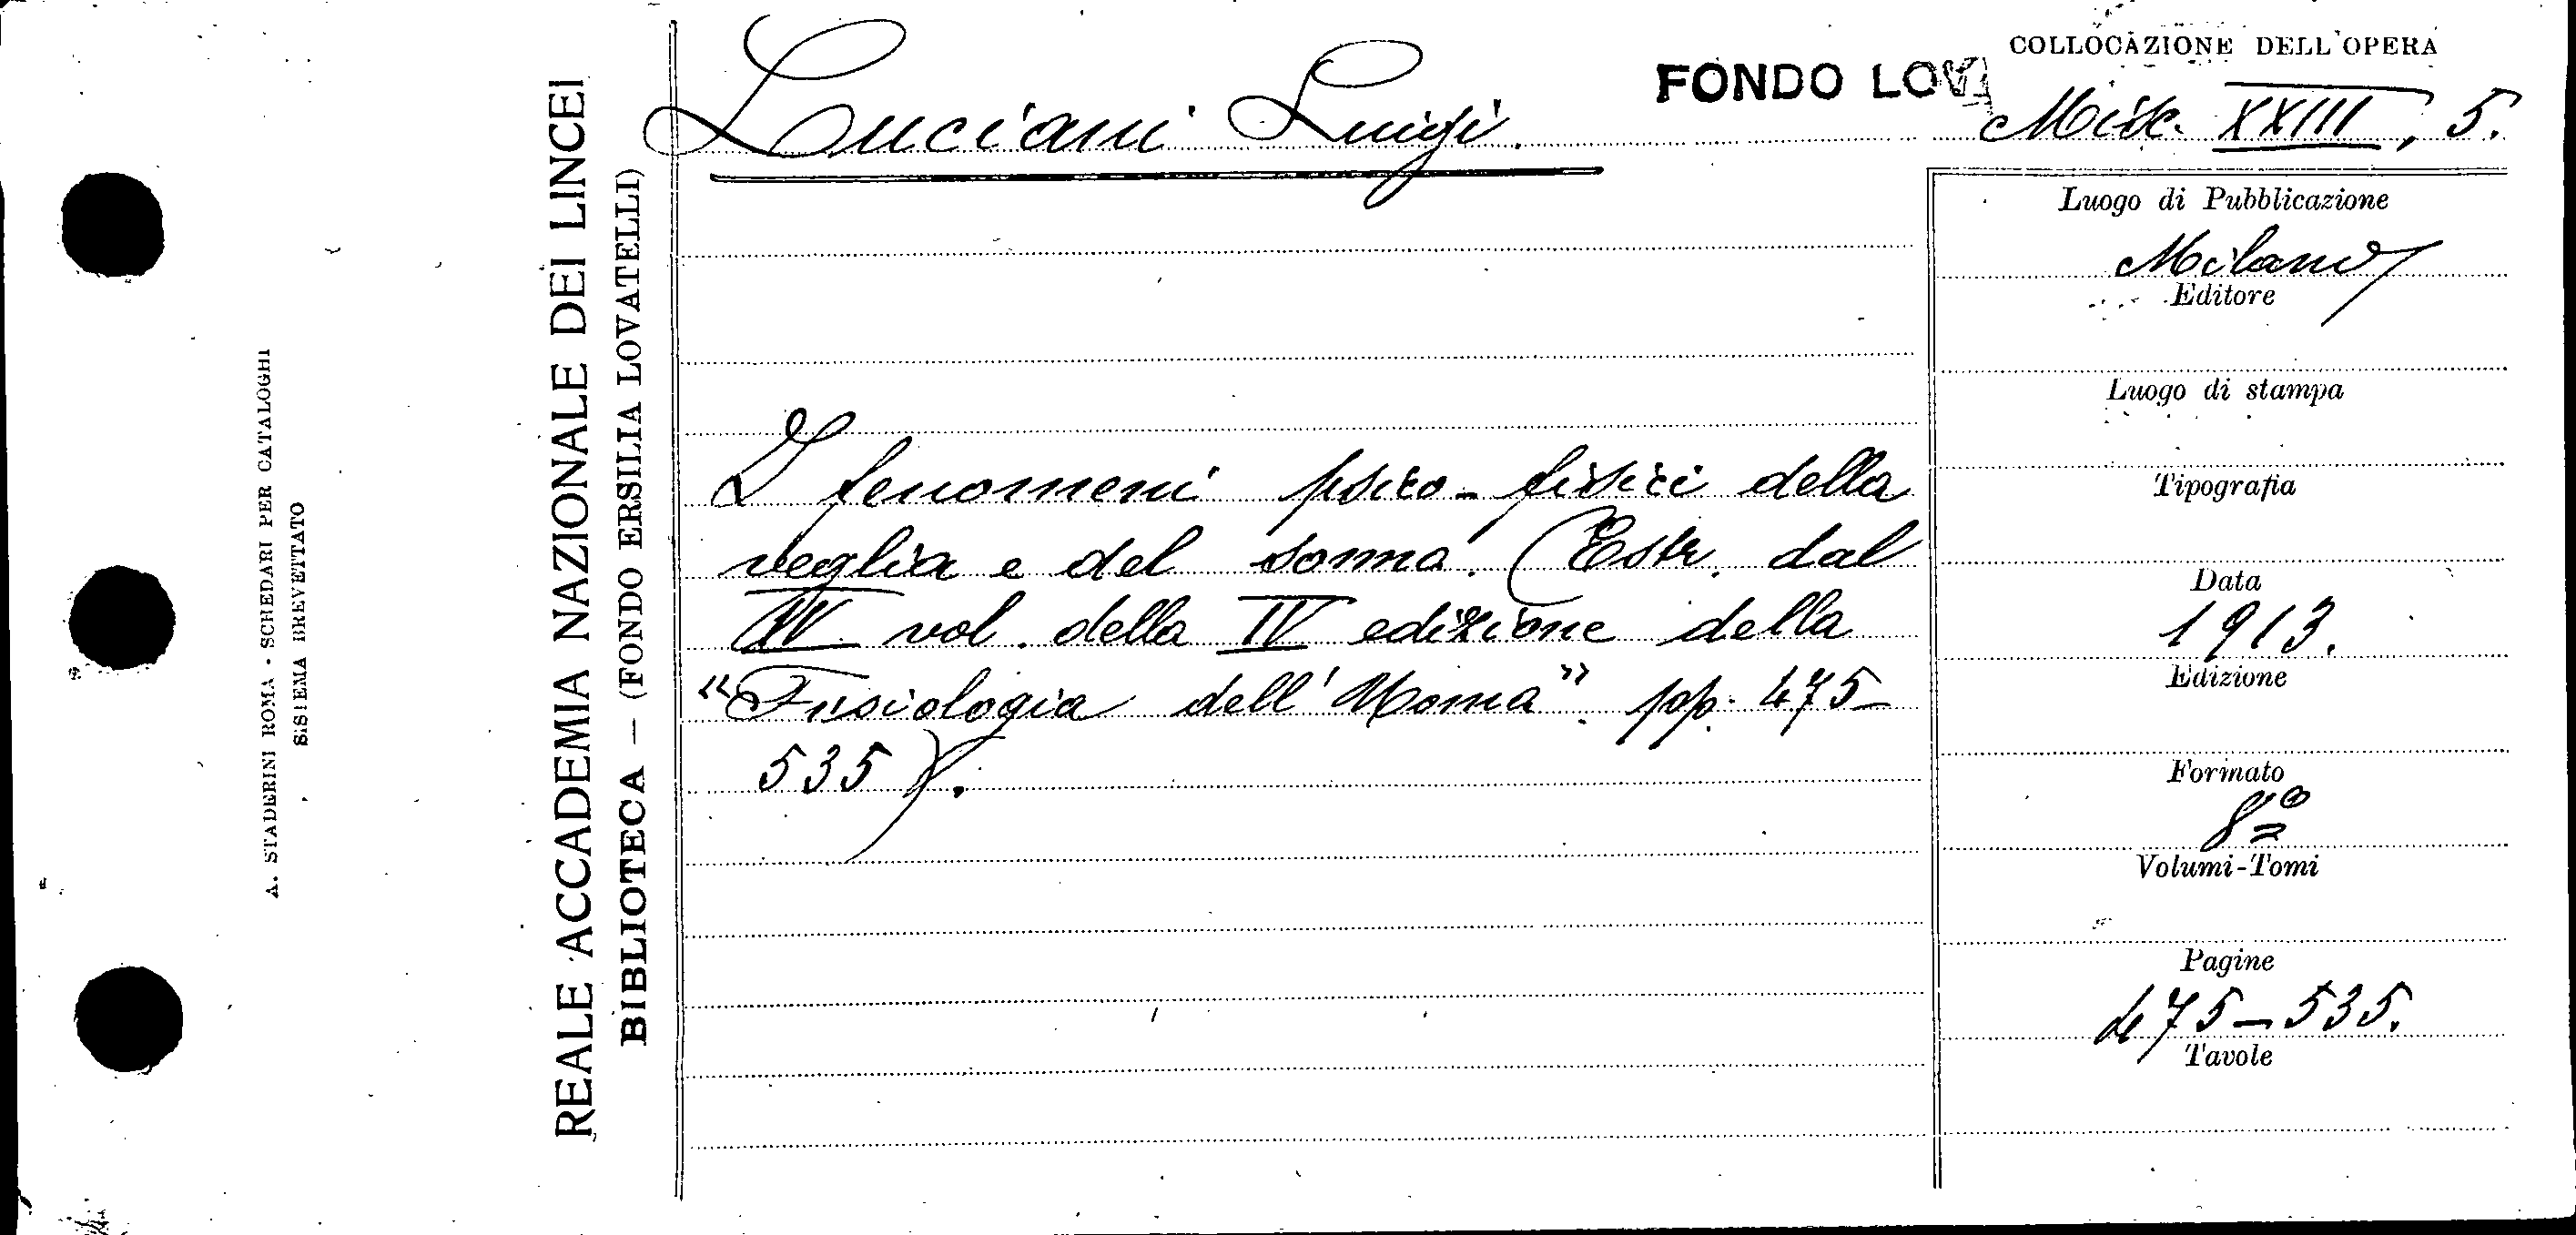 A. STADERINI ROMA - SCHEDARI PER CATALOGHI
SISTEMA BREVETTATO
REALE ACCADEMIA NAZIONALE DEI LINCEI
BIBLIOTECA — (FONDO ERSILIA LOVATELLI)
Luciani Luigi.
FONDO LOVA
COLLOCAZIONE DELL'OPERA
Misc. XXIII, 5.
I fenomeni psico-fisici della
veglia e del sonno. (Estr. dal
IV vol. della IV edizione della
"Fisiologia dell'Uomo". pp. 475-
535).
Luogo di Pubblicazione
Milano
Editore
Luogo di stampa
Tipografia
Data
1913.
Edizione
Formato
8°
Volumi-Tomi
Pagine
475-535.
Tavole